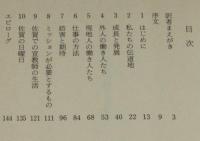 目次
訳者まえがき 3
序文 9
1 はじめに 13
2 私たちの伝道地 22
3 成長と発展 40
4 外人の働き人たち 53
5 現地人の働き人たち 68
6 仕事の方法 84
7 妨害と期待 96
8 ミッションが必要とするもの 111
9 佐賀での宣教師の生活 121
10 佐賀の日曜日 135
エピローグ 144